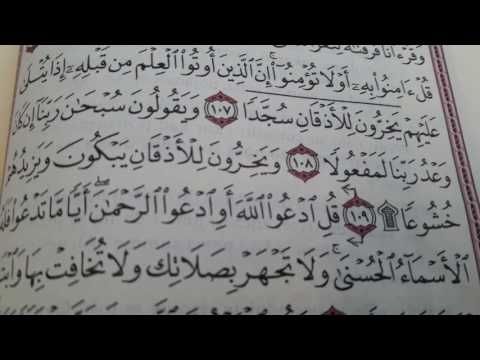 وَقُرْءَانًا فَرَقْنَٰهُ
قُلْ ءَامِنُوا۟ بِهِۦٓ أَوْ لَا تُؤْمِنُوٓا۟ ۚ إِنَّ ٱلَّذِينَ أُوتُوا۟ ٱلْعِلْمَ مِن قَبْلِهِۦٓ إِذَا يُتْلَىٰ
عَلَيْهِمْ يَخِرُّونَ لِلْأَذْقَانِ سُجَّدًا ١٠٧ وَيَقُولُونَ سُبْحَٰنَ رَبِّنَآ إِن كَانَ
وَعْدُ رَبِّنَا لَمَفْعُولًا ١٠٨ وَيَخِرُّونَ لِلْأَذْقَانِ يَبْكُونَ وَيَزِيدُهُمْ
خُشُوعًا ۩ ١٠٩ قُلِ ٱدْعُوا۟ ٱللَّهَ أَوِ ٱدْعُوا۟ ٱلرَّحْمَٰنَ ۖ أَيًّا مَّا تَدْعُوا۟ فَلَهُ
ٱلْأَسْمَآءُ ٱلْحُسْنَىٰ ۚ وَلَا تَجْهَرْ بِصَلَاتِكَ وَلَا تُخَافِتْ بِهَا وَٱبْتَغِ